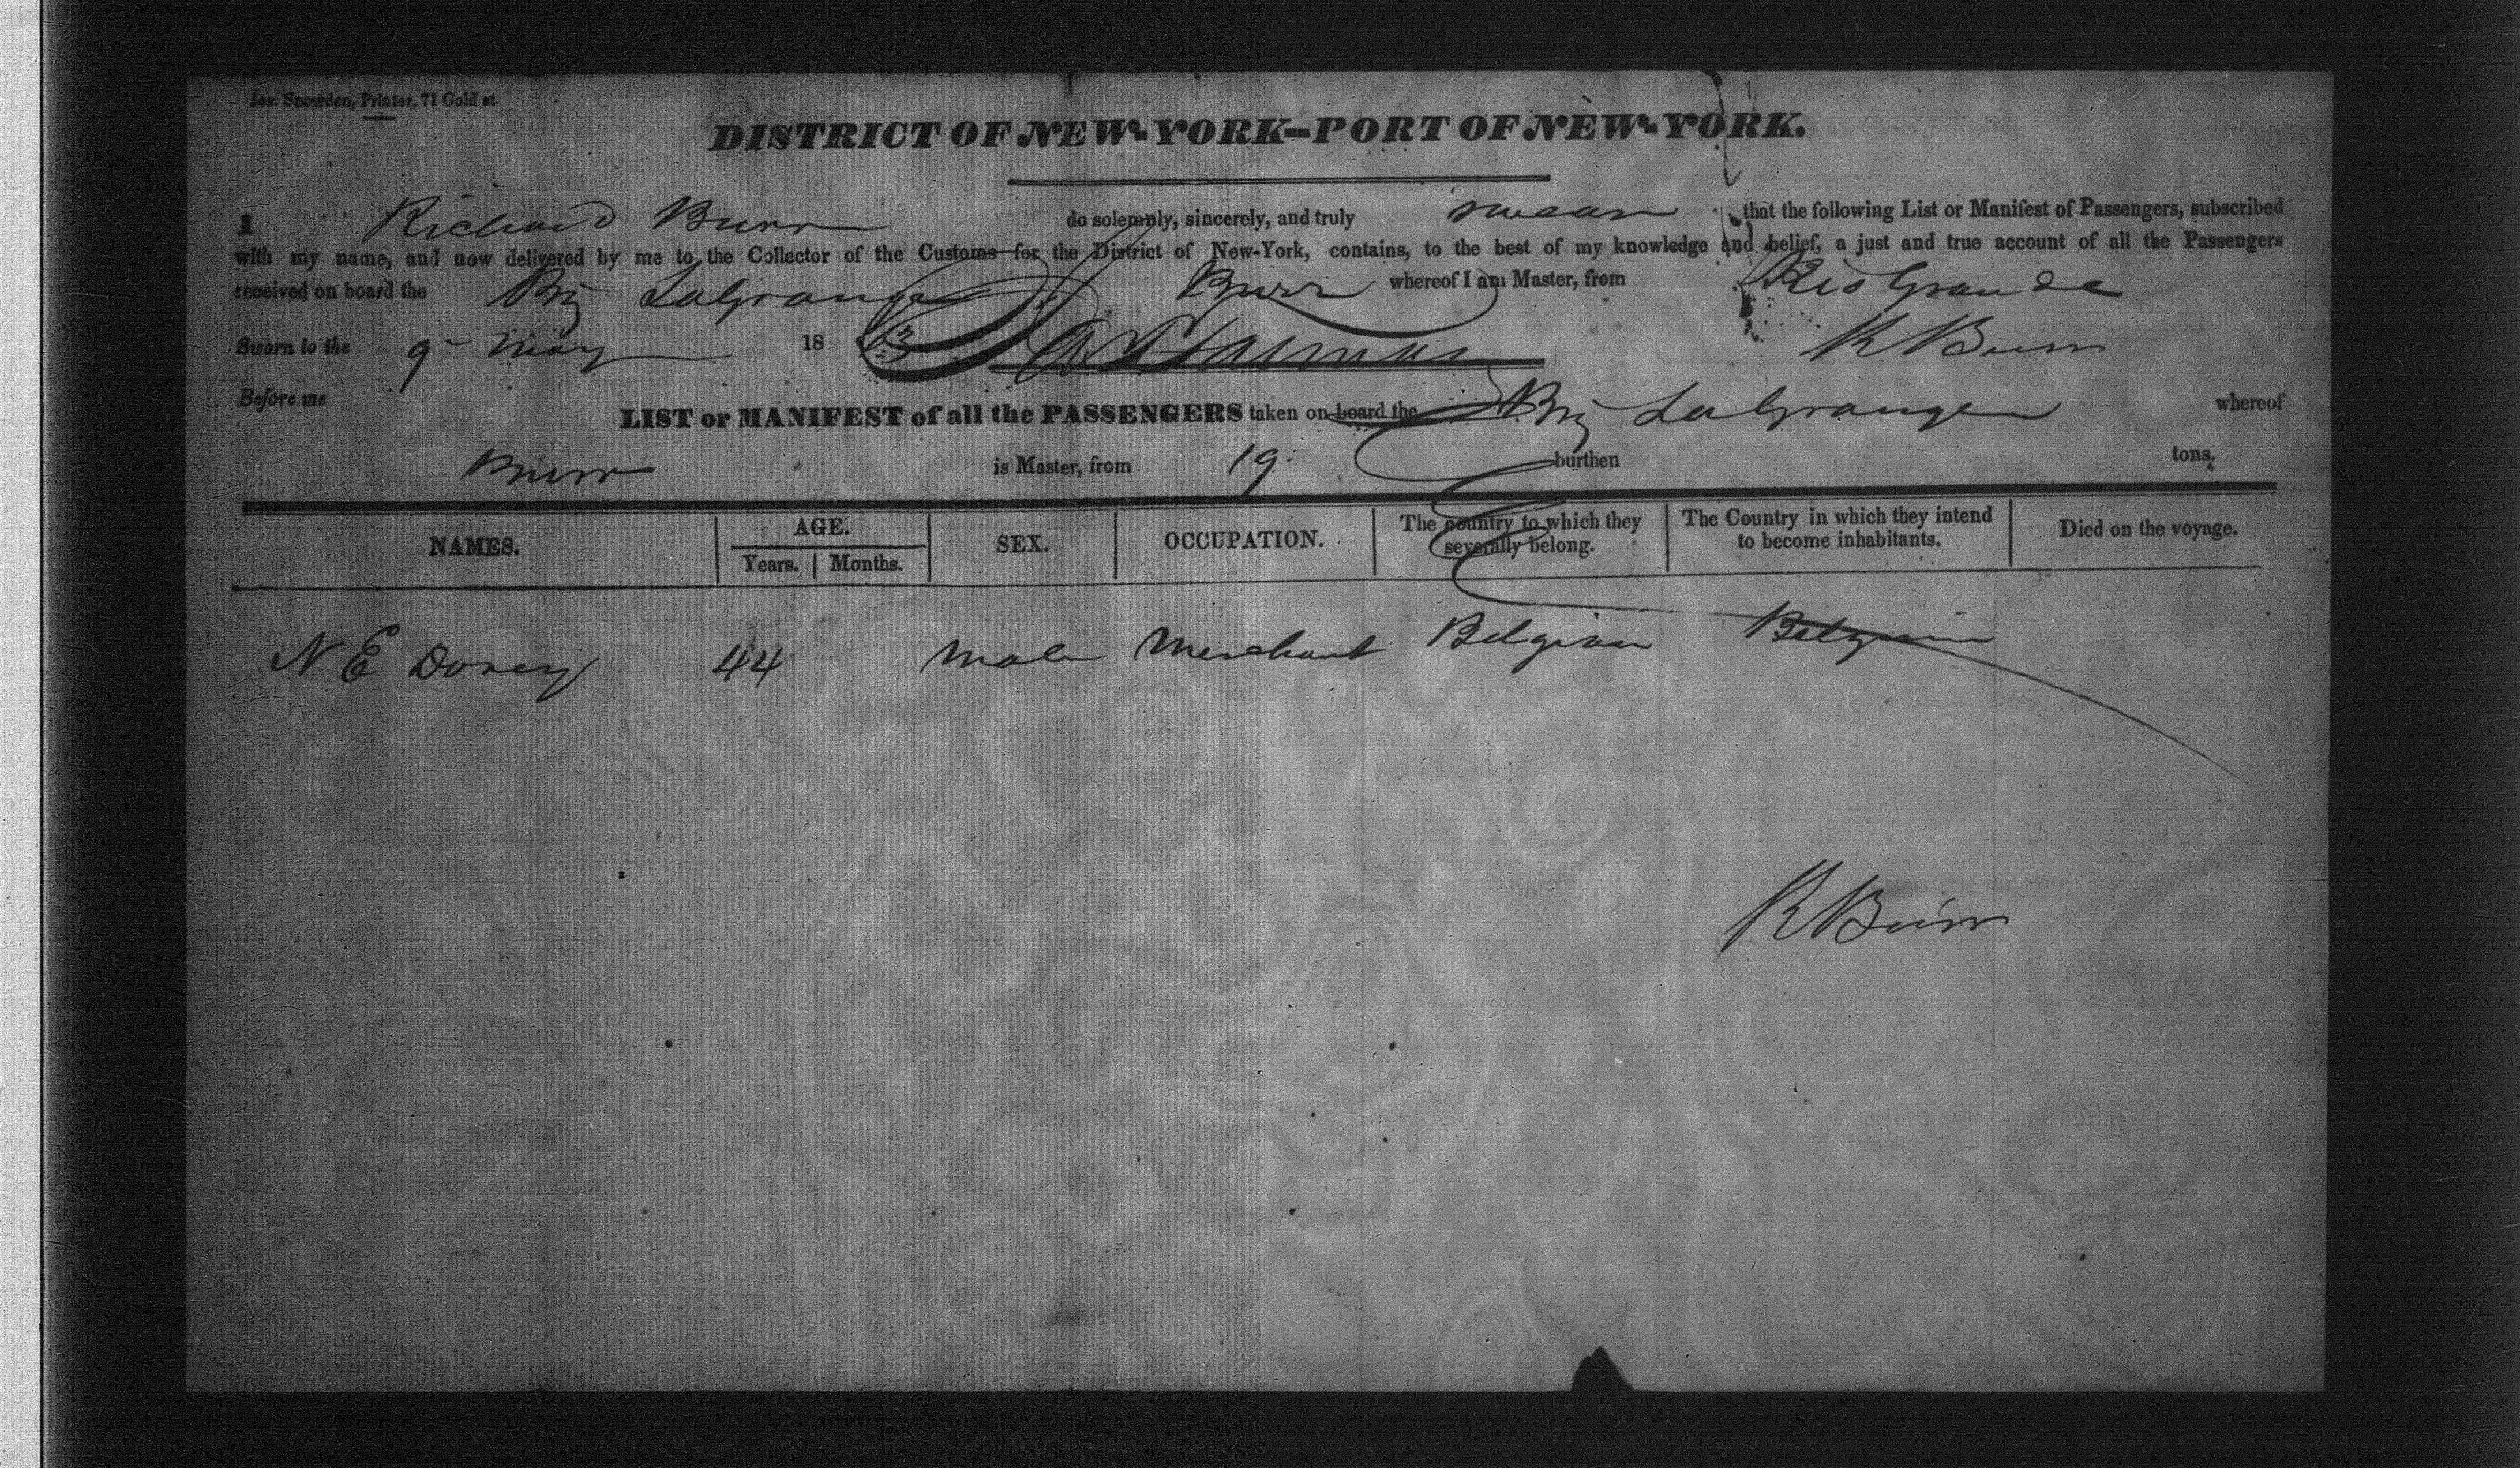 Jos. Snowden, Printer, 71 Gold st.
DISTRICT OF NEW-YORK--PORT OF NEW-YORK.
I Richard Burr do solemnly, sincerely, and truly swear that the following List or Manifest of Passengers, subscribed
with my name, and now delivered by me to the Collector of the Customs for the District of New-York, contains, to the best of my knowledge and belief, a just and true account of all the Passengers
received on board the Brig LaGrange Burr whereof I am Master, from Rio Grande
Sworn to the 9 May 18 R Burr
Before me
LIST or MANIFEST of all the PASSENGERS taken on board the Brig LaGrange whereof
Burr is Master, from 19 burthen tons.
NAMES. AGE. SEX. OCCUPATION. The country to which they severally belong. The Country in which they intend to become inhabitants. Died on the voyage.
Years. Months.
N E Dorey 44 Male Merchant Belgian Belgian
R Burr